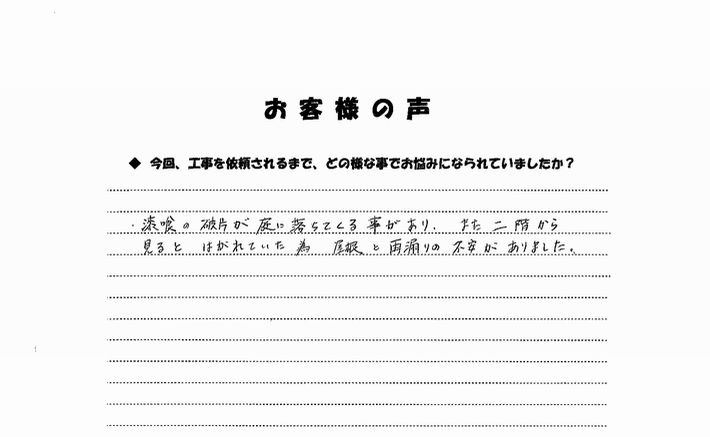 お客様の声
◆ 今回、工事を依頼されるまで、どの様な事でお悩みになられていましたか？
・漆喰の破片が庭に落ちてくる事があり、また二階から
見ると はがれていた為 屋根と雨漏りの不安がありました。